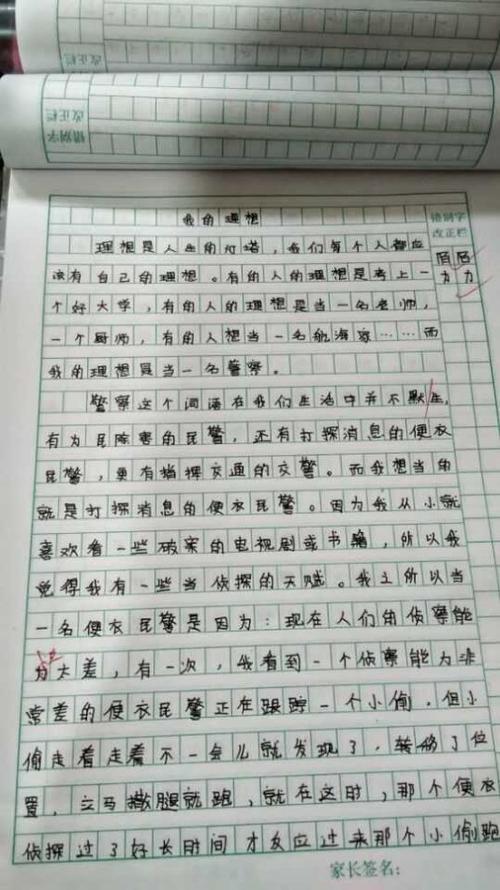 错别字
改正栏
错别字
改正栏
我的理想
理想是人生的灯塔，我们每个人都应
该有自己的理想。有的人的理想是考上一
个好大学，有的人的理想是当一名老师，
一个厨师，有的人想当一名航海家……而
我的理想是当一名警察。
警察这个词语在我们生活中并不默生，
有为民除害的民警，还有打探消息的便衣
民警，更有指挥交通的交警。而我想当的
就是打探消息的便衣民警。因为我从小就
喜欢看一些破案的电视剧或书籍，所以我
觉得我有一些当侦探的天赋。我之所以当
一名便衣民警是因为：现在人们的侦察能
为太差，有一次，我看到一个侦察能为非
常差的便衣民警正在跟踪一个小偷，但小
偷走着走着不一会儿就发现了，转移了位
置，立马撒腿就跑，就在这时，那个便衣
侦探过了好长时间才反应过来那个小偷跑
陌陌
力力
家长签名：